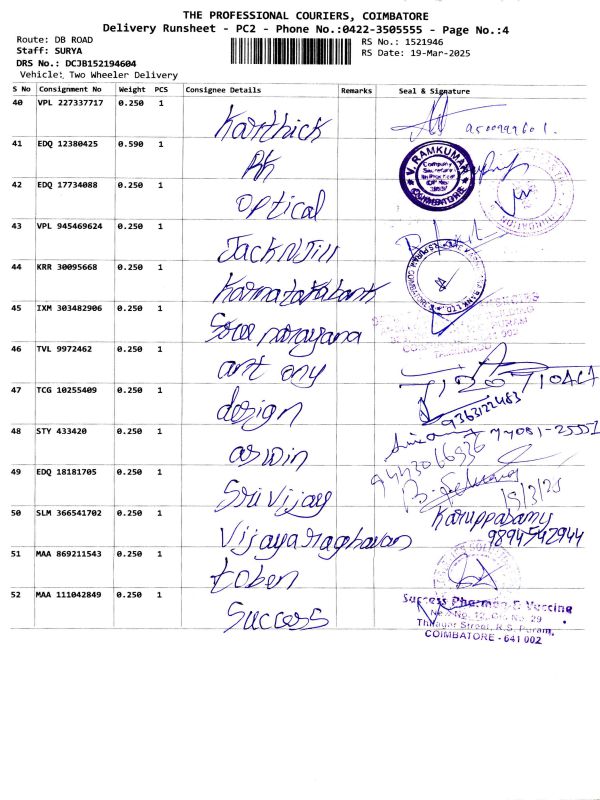 THE PROFESSIONAL COURIERS, COIMBATORE
Delivery Runsheet - PC2 - Phone No.:0422-3505555 - Page No.:4
Route: DB ROAD
RS No.: 1521946
Staff: SURYA
RS Date: 19-Mar-2025
DRS No.: DCJB152194604
Vehicle: Two Wheeler Delivery
S No Consignment No Weight PCS Consignee Details Remarks Seal & Signature
40 VPL 227337717 0.250 1 Karthick
41 EDQ 12380425 0.590 1 RK V. RAMKUMAR Company Secretary COIMBATORE
42 EDQ 17734088 0.250 1 optical
43 VPL 945469624 0.250 1 Jack N Jill
44 KRR 30095668 0.250 1 Karnataka bank
45 IXM 303482906 0.250 1 Sree narayana
46 TVL 9972462 0.250 1 art any
47 TCG 10255409 0.250 1 design 9363122483
48 STY 433420 0.250 1 aswin
49 EDQ 18181705 0.250 1 Sri vijay 19/3/25
50 SLM 366541702 0.250 1 Vijayaraghavan Karuppasamy 9894542944
51 MAA 869211543 0.250 1 toben
52 MAA 111042849 0.250 1 Success
Success Pharma & Vaccine
Thilagar Street, R.S. Puram,
COIMBATORE - 641 002